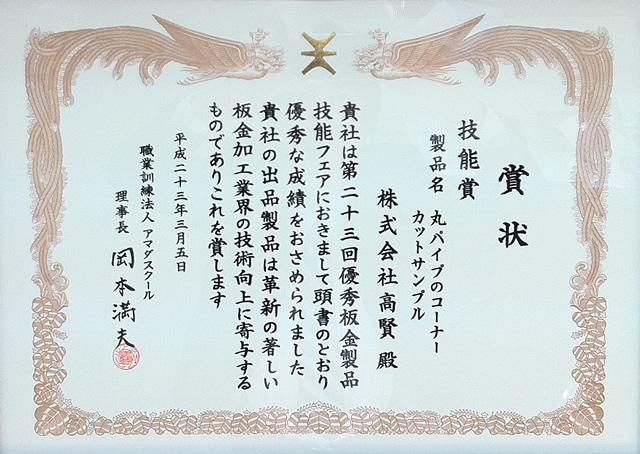 賞状
技能賞
製品名 丸パイプのコーナー
カットサンプル
株式会社高賢 殿
貴社は第二十三回優秀板金製品
技能フェアにおきまして頭書のとおり
優秀な成績をおさめられました
貴社の出品製品は革新の著しい
板金加工業界の技術向上に寄与する
ものでありこれを賞します
平成二十三年三月五日
職業訓練法人 アマダスクール
理事長 岡本満夫